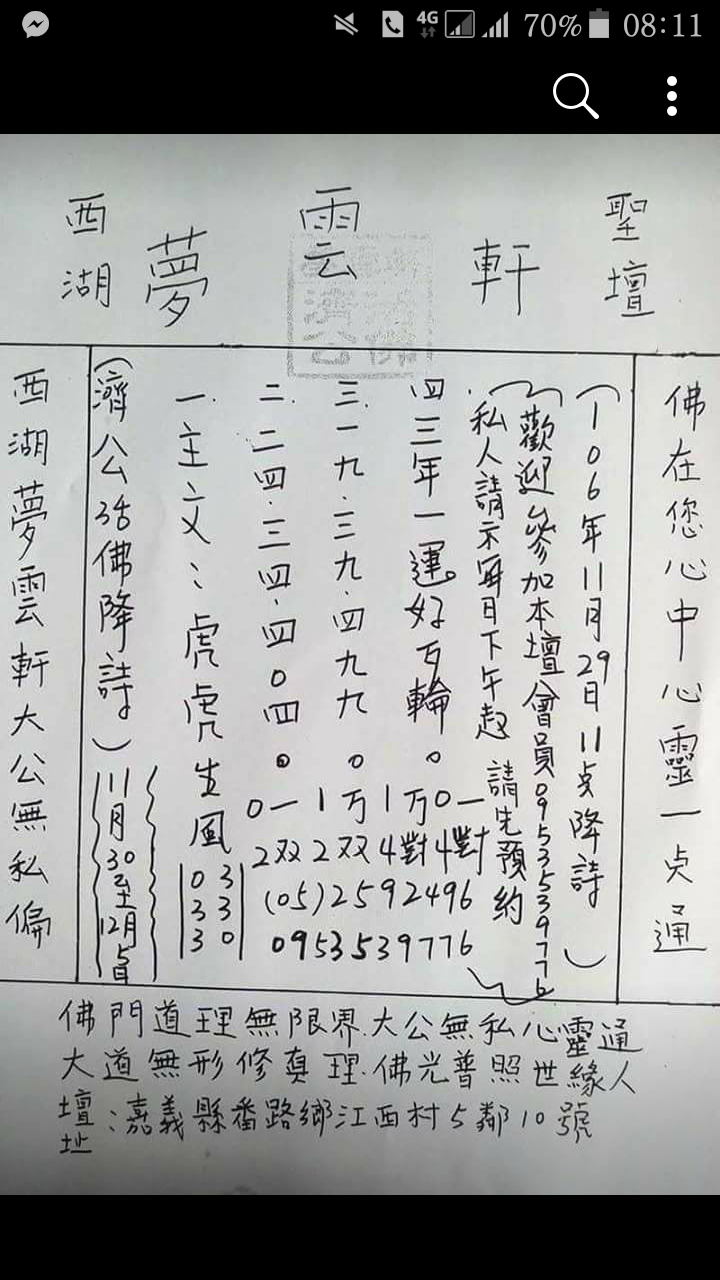 4G 70% 08:11
聖壇
軒
雲
夢
西湖
佛在您心中心靈一点通
(106年11月29日11点降詩)
(歡迎參加本壇會員0953539776)
私人請示每日下午起 請先預約
四三年一運好百輪。
三.一九.三九.四九九。
二.二四.三四.四0四。
一.主文:虎虎生風
(濟公活佛降詩)
11月30至12月5日
0一1万1万0一
2双2双4對4對
(05)2592496
0953539776
03
33
30
西湖夢雲軒大公無私偏
佛門道理無限界.大公無私心靈通
大道無形修真理.佛光普照世緣人
壇址:嘉義縣番路鄉江西村5鄰10號